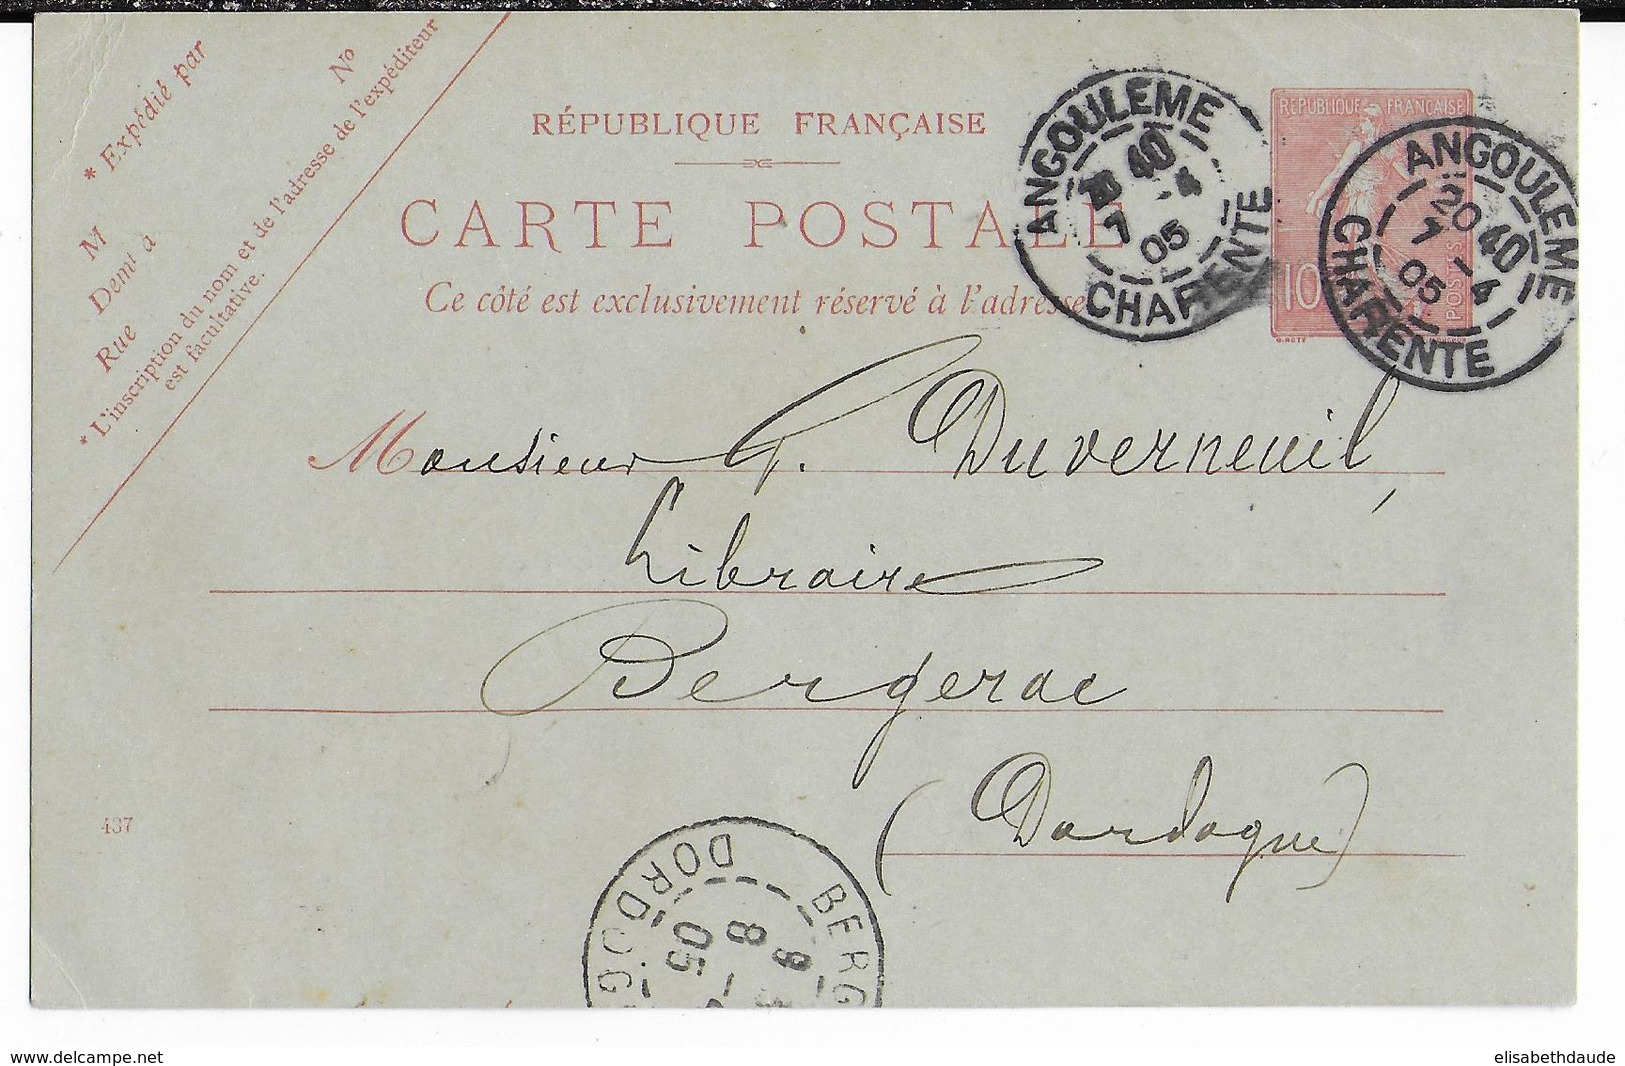 * Expédié par
M
Nº
Demt à
Rue
* L'inscription du nom et de l'adresse de l'expéditeur
est facultative.
RÉPUBLIQUE FRANÇAISE
CARTE POSTALE
Ce côté est exclusivement réservé à l'adresse
ANGOULEME
40
7 -4
05
CHARENTE
REPUBLIQUE FRANÇAISE
10
POSTES
O. ROTY
ANGOULEME
20 40
7 -4
05
CHARENTE
Monsieur G. Duverneuil,
Libraire
Bergerac
(Dordogne)
437
BERG
8
05
DORDOG
delcampe.net
elisabethdaude